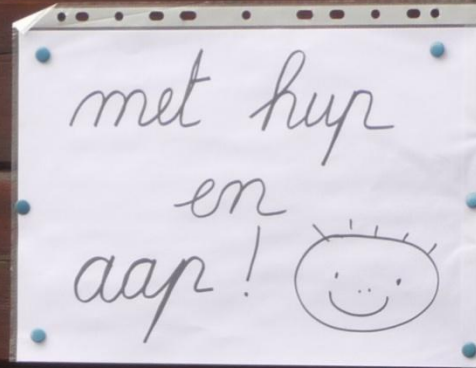 met hup
en
aap!